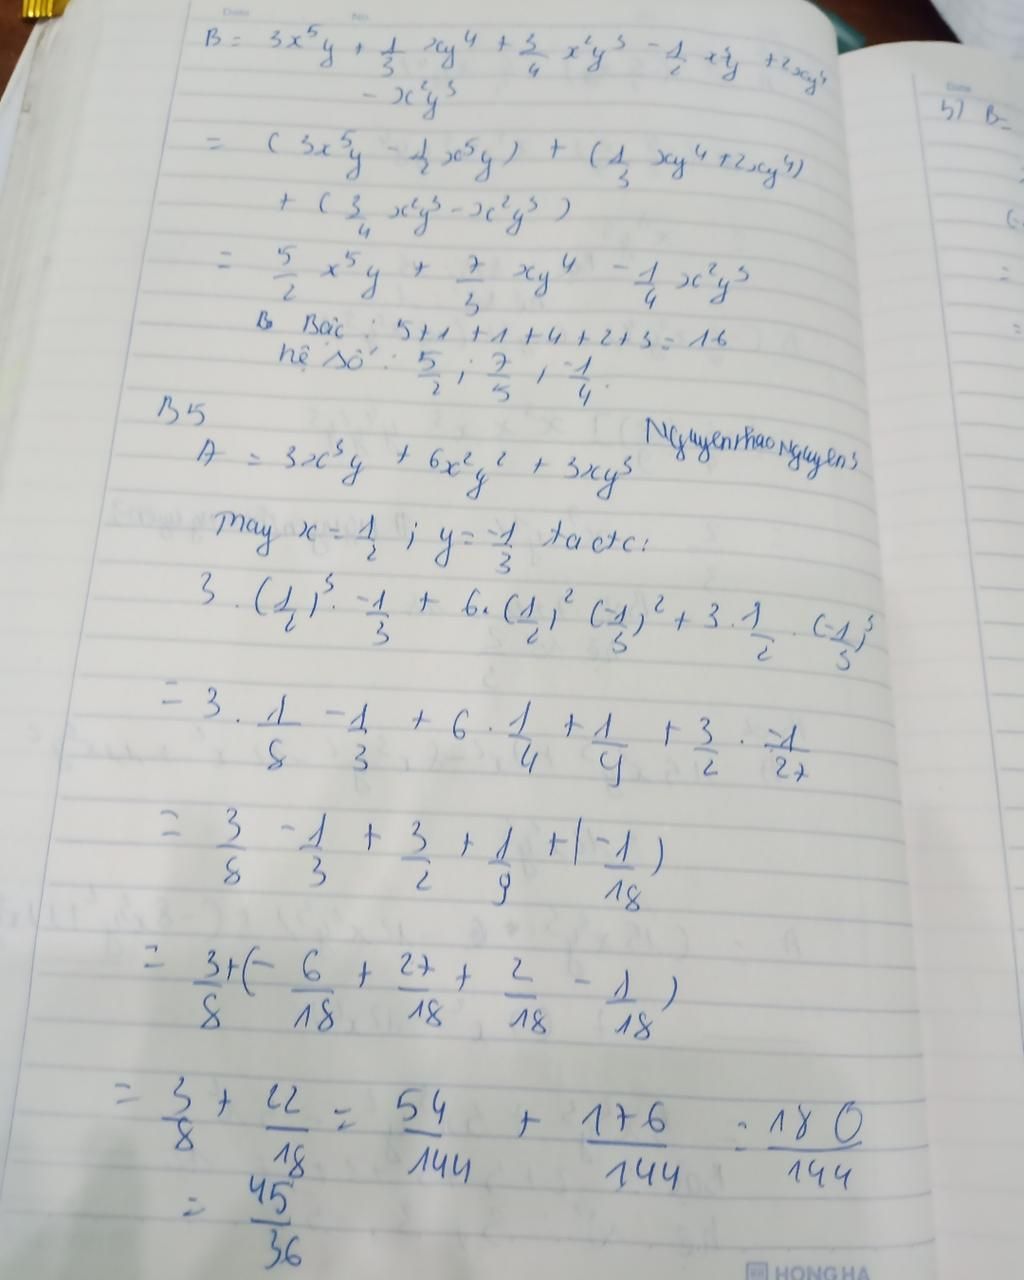 Date No.
B = 3x⁵y + 1/3 xy⁴ + 3/4 x²y³ - 1/2 x⁵y + 2xy⁴
- x²y³
= (3x⁵y - 1/2 x⁵y) + (1/3 xy⁴ + 2xy⁴)
+ (3/4 x²y³ - x²y³)
= 5/2 x⁵y + 7/3 xy⁴ - 1/4 x²y³
B Bậc : 5+1+1+4+2+3=16
hệ số : 5/2 ; 7/5 ; -1/4.
B5
Nguyenthao Nguyen
A = 3x³y + 6x²y² + 3xy³
Thay x = 1/2 ; y = -1/3 tactc:
3 . (1/2)³ . -1/3 + 6 . (1/2)² (-1/3)² + 3 . 1/2 . (-1/3)³
= 3 . 1/8 -1/3 + 6 . 1/4 + 1/9 + 3/2 . -1/27
= 3/8 -1/3 + 3/2 + 1/9 + (-1/18)
= 3/8 + (- 6/18 + 27/18 + 2/18 - 1/18)
= 3/8 + 22/18 = 54/144 + 176/144 = 180/144
= 45/36
Date
b) B=
HONG HA